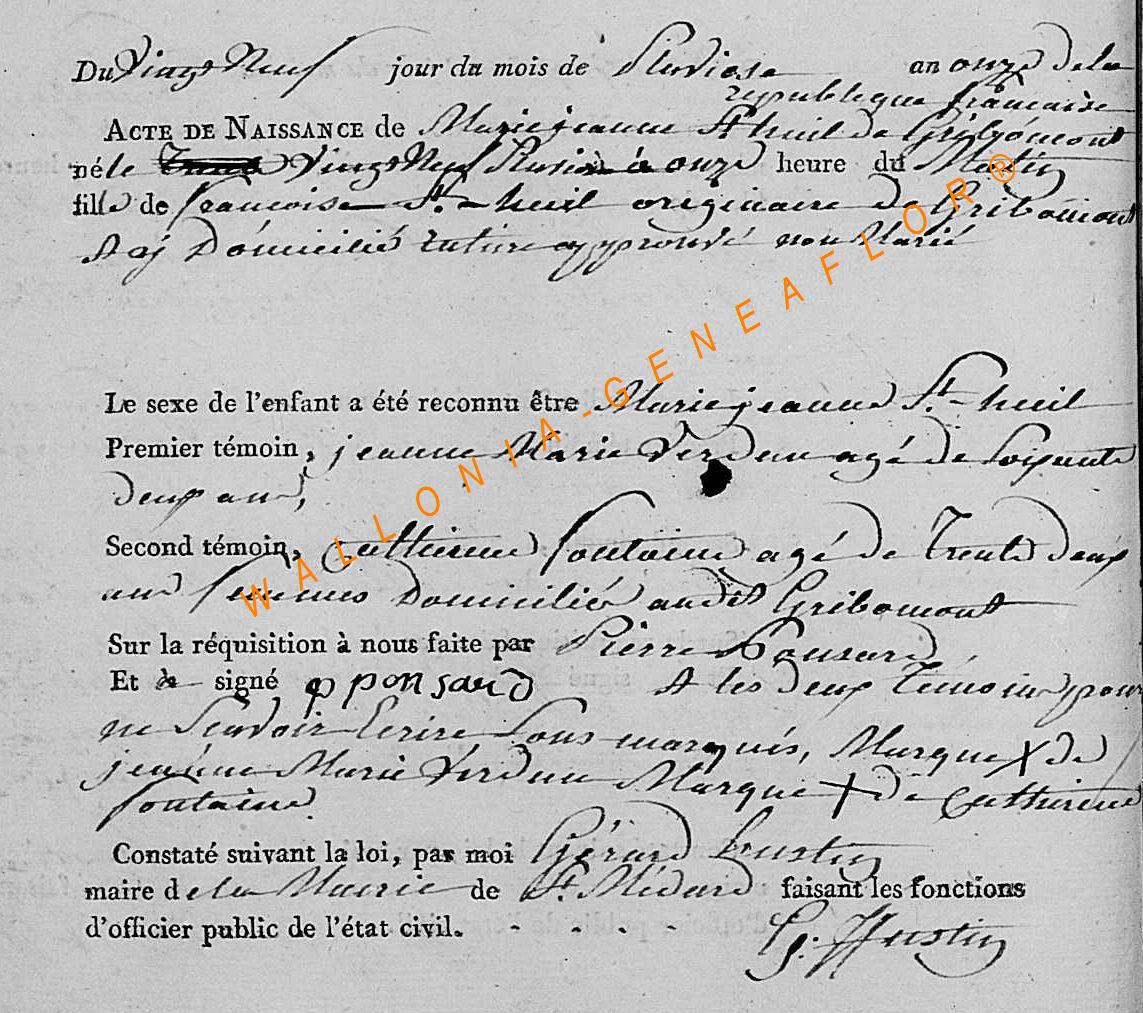 Du Vingt Neuf jour du mois de Pluviose an onze de la
republique francaise
ACTE DE NAISSANCE de Marie jeanne St heuil de Gribomont
né le Vingt Neuf Pluviose à onze heure du Matin
fille de francoise St. heuil originaire de Gribomont
& aj Domicilié rature approuvé non Marié
Le sexe de l'enfant a été reconnu être Marie jeanne St. heuil
Premier témoin, jeanne Marie Verdun agé de Soixante
deux ans,
Second témoin, Catherine fontaine agé de Trente deux
ans femmes Domicilié audit Gribomont
Sur la réquisition à nous faite par Pierre Ponsard
Et à signé p ponsard & les deux Témoins pour
ne Scavoir Ecrire Sous marqués, Marque X de
jeanne Marie Verdun Marque X de Catherine
fontaine
Constaté suivant la loi, par moi Gérard hustin
maire de la Mairie de St. Médard faisant les fonctions
d'officier public de l'état civil.
G. Hustin
WALLONIA-GENEAFLOR®